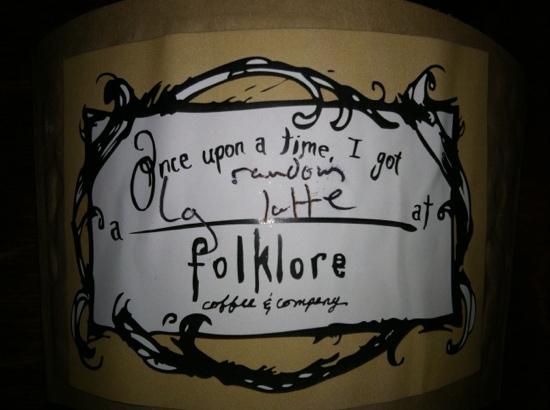 Once upon a time, I got
random
a Lg latte at
folklore
coffee & company